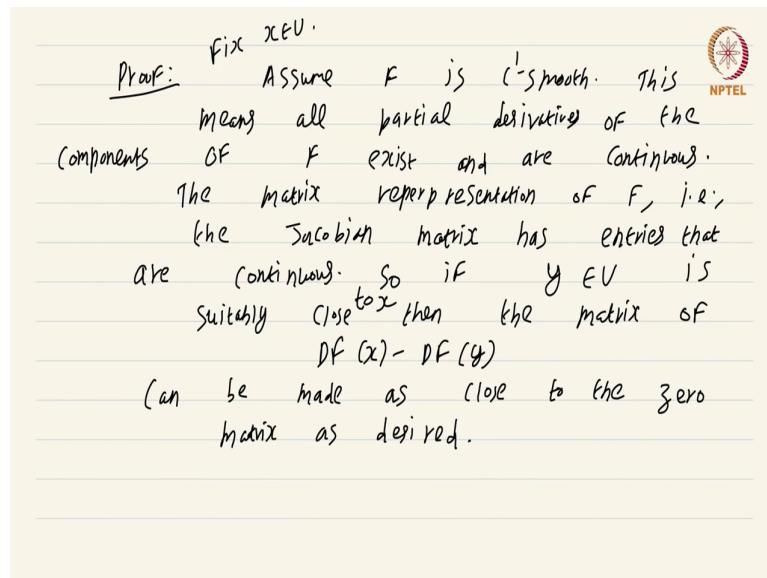 Fix x ∈ U.
Proof: Assume F is C¹-smooth. This
means all partial derivatives of the
components of F exist and are continuous.
The matrix reperpresentation of F, i.e.,
the Jacobian matrix has entries that
are continuous. So if y ∈ U is
suitably close to x then the matrix of
DF(x) - DF(y)
can be made as close to the zero
matrix as desired.
NPTEL